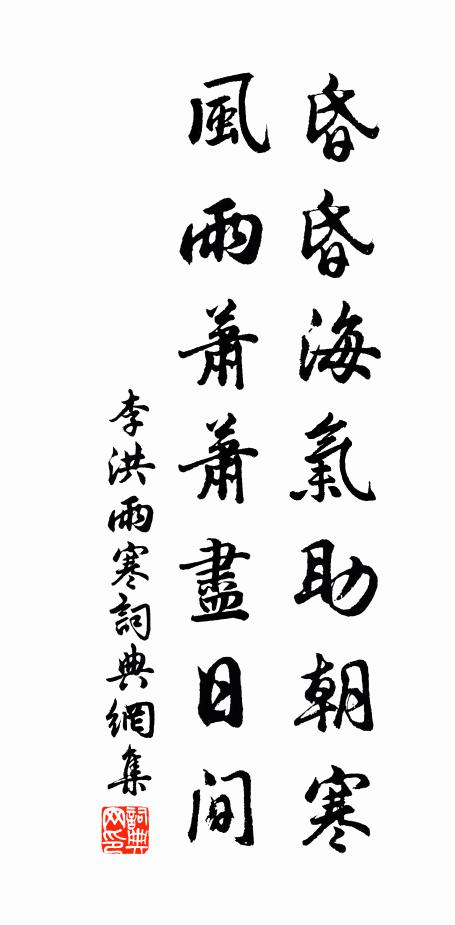 昏昏海氣助朝寒
風雨蕭蕭盡日间
李洪雨寒詞典網集
詞典网印